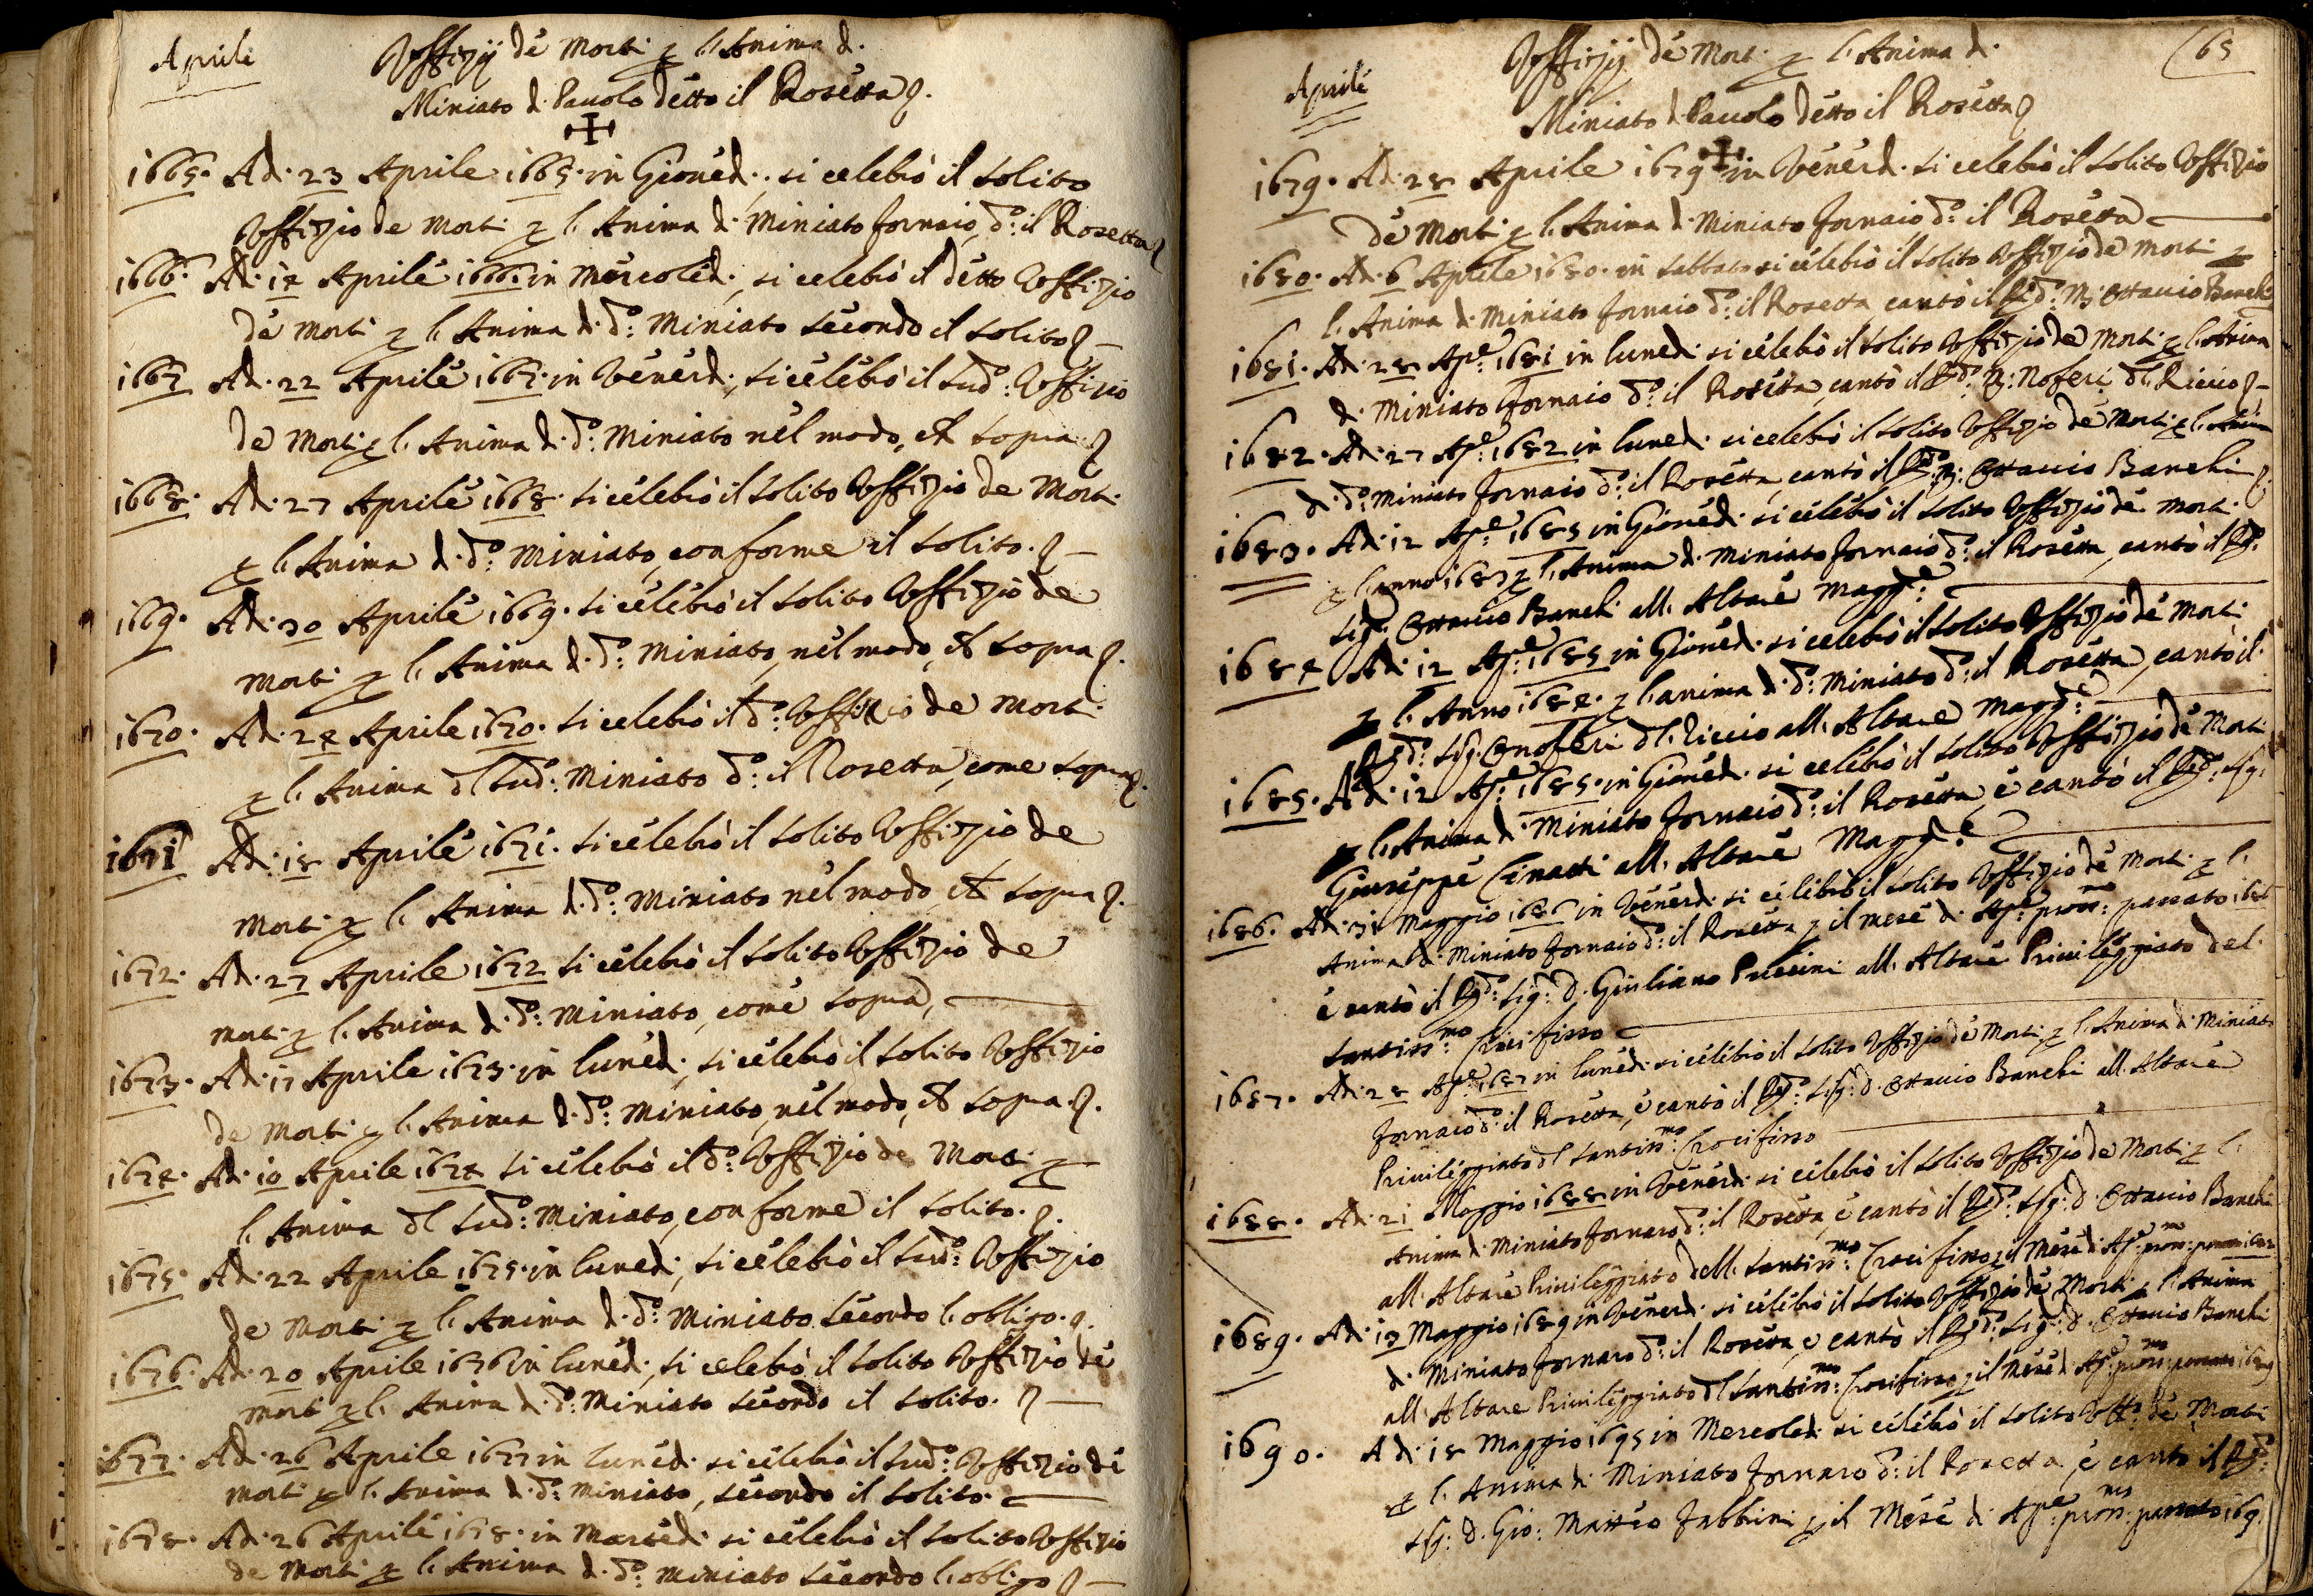 Aprile
Voffizij dè Morti p l'Anima di
Miniato di Pauolo détto il Rosetta
1665. Adi 23 Aprile 1665. in Giouedi, si celebrò il solito
Voffizio de Morti p l'Anima di Miniato fornaio, d:o il Rosetta
1666. Adi 14 Aprile 1666. in Mercoledi, si celebrò il detto Voffizio
de Morti p l'Anima di d:o Miniato secondo il solito
1667 Adi 22 Aprile 1667. in Venerdi, si celebrò il sud:o Voffizio
de Morti p l'Anima di d:o Miniato nel modo, che sopra
1668. Adi 27 Aprile 1668. si celebrò il solito Voffizio de Morti
p l'Anima di d:o Miniato, conforme il solito.
1669. Adi 30 Aprile 1669. si celebrò il solito Voffizio de
Morti p l'Anima di d:o Miniato, nel modo, che sopra
1670. Adi 24 Aprile 1670. si celebrò il d:o Voffizio de Morti
p l'Anima dl sud:o Miniato d:o il Rosetta, come sopra
1671 Adi 18 Aprile 1671. si celebrò il solito Voffizio de
Morti p l'Anima di d:o Miniato nel modo, che sopra
1672. Adi 27 Aprile 1672 si celebrò il solito Voffizio de
Morti p l'Anima di d:o Miniato, come sopra,
1673. Adi 17 Aprile 1673. in lunedi, si celebrò il solito Voffizio
de Morti p l'Anima di d:o Miniato, nel modo, che sopra.
1674. Adi 10 Aprile 1674 si celebrò il d:o Voffizio de Morti p
l'Anima dl sud:o Miniato, conforme il solito.
1675. Adi 22 Aprile 1675. in lunedi, si celebrò il sud:o Voffizio
de Morti p l'Anima di d:o Miniato secondo l'obligo.
1676. Adi 20 Aprile 1676 in lunedi, si celebrò il solito Voffizio de
Morti p l'Anima di d:o Miniato secondo il solito.
1677. Adi 26 Aprile 1677 in lunedi si celebrò il sud:o Voffizio de
Morti p l'Anima di d:o Miniato, secondo il solito.
1678. Adi 26 Aprile 1678. in Martedi si celebrò il solito Voffizio
de Morti p l'Anima di d:o Miniato secondo l'obligo
65
Aprile
Voffizij de Morti p l'Anima di
Miniato di Pauolo detto il Rosetta
1679. Adi 28 Aprile 1679 in Venerdi si celebrò il solito Voffizio
de Morti p l'Anima di Miniato fornaio d:o il Rosetta
1680. Adi 6 Aprile 1680. in sabbato si celebrò il solito Voffizio de Morti p
l'Anima di Miniato fornaio d:o il Rosetta, cantò il Rd:o Ottauio Banchi
1681. Adi 28 Ap:e 1681 in lunedi si celebrò il solito Voffizio de Morti p l'Anima
di Miniato fornaio d:o il Rosetta, cantò il Rd:o Noferi dl Riccio
1682. Adi 27 Ap:e 1682 in lunedi si celebrò il solito Voffizio de Morti p l'Anima
di d:o Miniato fornaio d:o il Rosetta, cantò il Rd:o Ottauio Banchi
1683. Adi 12 Ap:e 1685 in Giouedi si celebrò il solito Voffizio de Morti
p l'anno 1683 p l'Anima di Miniato fornaio d:o il Rosetta, cantò il Rd:o
Sig: Ottauio Banchi all'Altare Magg:e
1684 Adi 12 Ap:e 1685 in Giouedi si celebrò il solito Voffizio de Morti
p l'Anno 1684. p l'anima di d:o Miniato d:o il Rosetta, cantò il
Rd:o Sig: Onoferi dl Riccio all'Altare Magg:e
1685. Adi 12 Ap:e 1685. in Giouedi si celebrò il solito Voffizio de Morti
p l'Anima di Miniato fornaio d:o il Rosetta, e cantò il Rd:o Sig:
Giuseppe Cinatti all'Altare Magg:e
1686. Adi 31 Maggio 1686 in Venerdi si celebrò il solito Voffizio de Morti p l'
Anima di Miniato fornaio d:o il Rosetta p il mese di Ap:e pross:mo passato 1686
e cantò il Rd:o Sig: D. Giuliano Puccini all'Altare Priuileggiato del
Santiss:mo Crocifisso
1687. Adi 28 Ap:e 1687 in lunedi si celebrò il solito Voffizio de Morti p l'Anima di Miniato
fornaio d:o il Rosetta, e cantò il Rd:o Sig: D. Ottauio Banchi all'Altare
Priuileggiato dl Santiss:mo Crocifisso
1688. Adi 21 Maggio 1688 in Venerdi si celebrò il solito Voffizio de Morti p l'
Anima di Miniato fornaro d:o il Rosetta, e cantò il Rd:o Sig: D. Ottauio Banchi
all'Altare Priuileggiato dell Santiss:mo Crocifisso p il Mese di Ap:e pross:mo passato
1689. Adi 13 Maggio 1689 in Venerdi si celebrò il solito Voffizio de Morti p l'Anima
di Miniato fornaro d:o il Rosetta, e cantò il Rd:o Sig: D. Ottauio Banchi
all'Altare Priuileggiato dl Santiss:mo Crocifisso p il Mese di Ap:e pross:mo passato 1689
1690. Adi 18 Maggio 1695 in Mercoledi si celebrò il solito Voff:o de Morti
p l'Anima di Miniato fornaro d:o il Rosetta, e cantò il Rd:o
Sig: D. Gio: Matteo Fabbrini p il Mese di Ap:e pross:mo passato 169